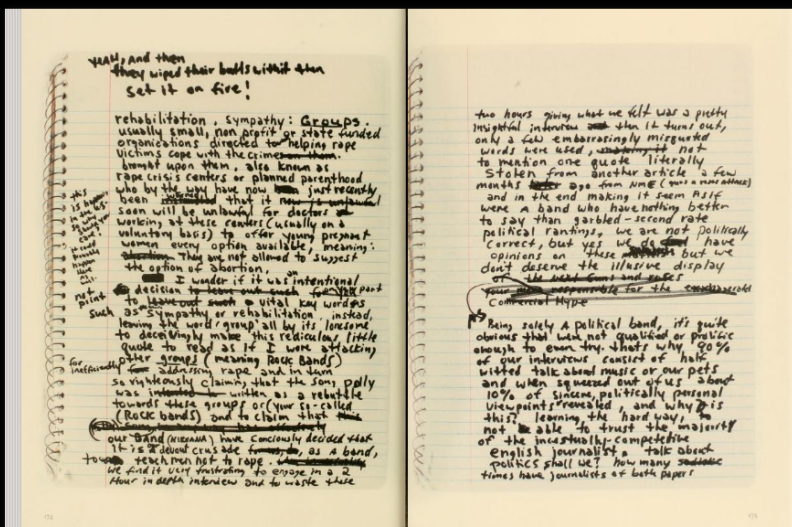 YEAH, And then
they wiped their butts with it then
set it on fire!
rehabilitation, sympathy: Groups.
usually small, non profit or state funded
organizations directed to helping rape
victims cope with the crimes
brought upon them, also known as
rape crisis centers or planned parenthood
who by the way have now just recently
been that it
soon will be unlawful for doctors
working at these centers (usually on a
voluntary basis) to offer young pregnant
women every option available, meaning:
They are not allowed to suggest
the option of abortion.
I wonder if it was an intentional
decision on your part
to leave out such vital key words
as sympathy or rehabilitation, instead,
leaving the word 'group' all by its lonesome
to deceivingly make this rediculous little
quote to read as if I were attacking
other groups (meaning Rock BANDS)
for inefficiently addressing rape and in turn
so righteously claiming that the song, polly
was written as a rebuttle
towards these groups or (your so-called
(Rock bands) and to claim that
our BAND (NIRVANA) have conciously decided that
it is a devout crusade as A band,
to teach men not to rape.
we find it very frustrating to engage in a 2
Hour in depth interview and to waste these
this is happening in the U.S.
not point
two hours giving what we felt was a pretty
insightful interview then it turns out,
only a few embarrassingly misquoted
words were used, not
to mention one quote literally
stolen from another article a few
months ago from NME
and in the end making it seem AS if
were A band who have nothing better
to say than garbled-second rate
political rantings, we are not politically
correct, but yes we do have
opinions on these but we
don't deserve the illusive display
of the next Guns and roses
your responsible for the
Commercial Hype
PS
Being solely A political band, it's quite
obvious that were not qualified or prolific
enough to even try. that's why 90%
of our interviews consist of half
witted talk about music or our pets
and when squeezed out of us about
10% of sincere, politically personal
viewpoints revealed, and why is
this? learning the hard way, to
not be able to trust the majority
of the incestually-competetive
english journalist. talk about
politics shall we? how many
times have journalists of both papers